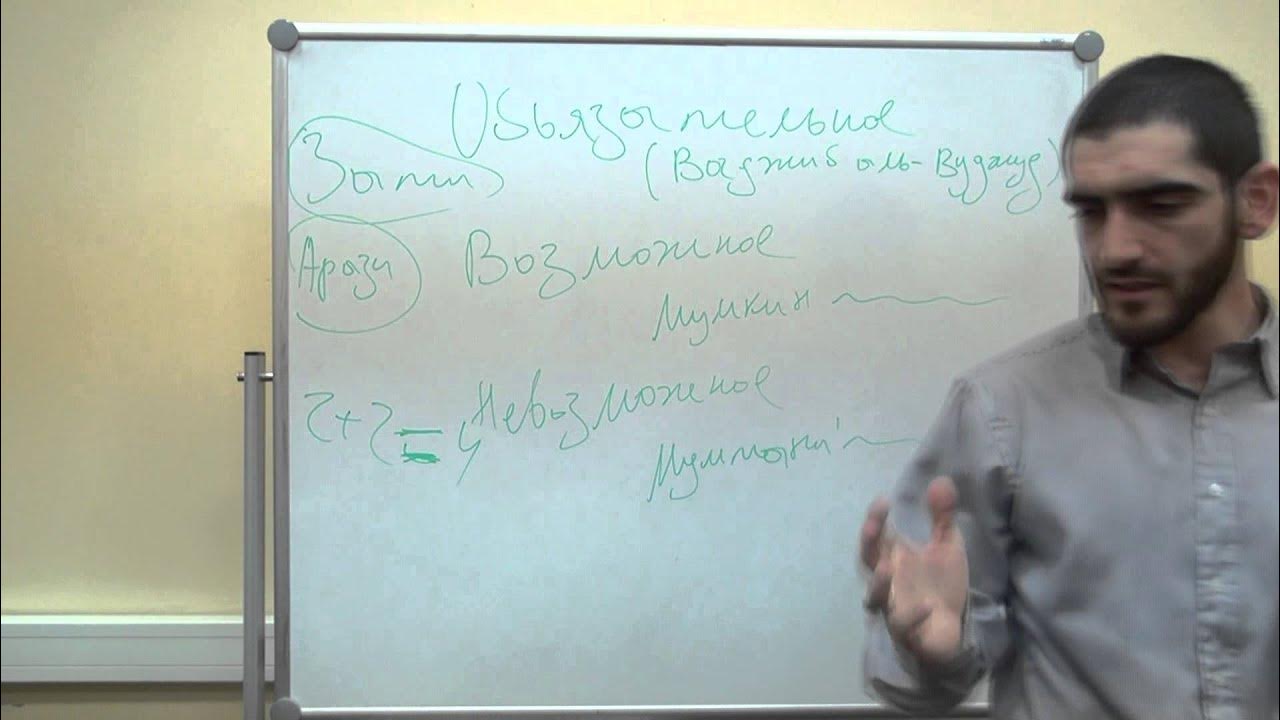 Обьязательное
Зати
(Ваджиб аль-Вуджуд)
Арази
Возможное
Мумкин
2+2=4
Невозможное
Мумтани'